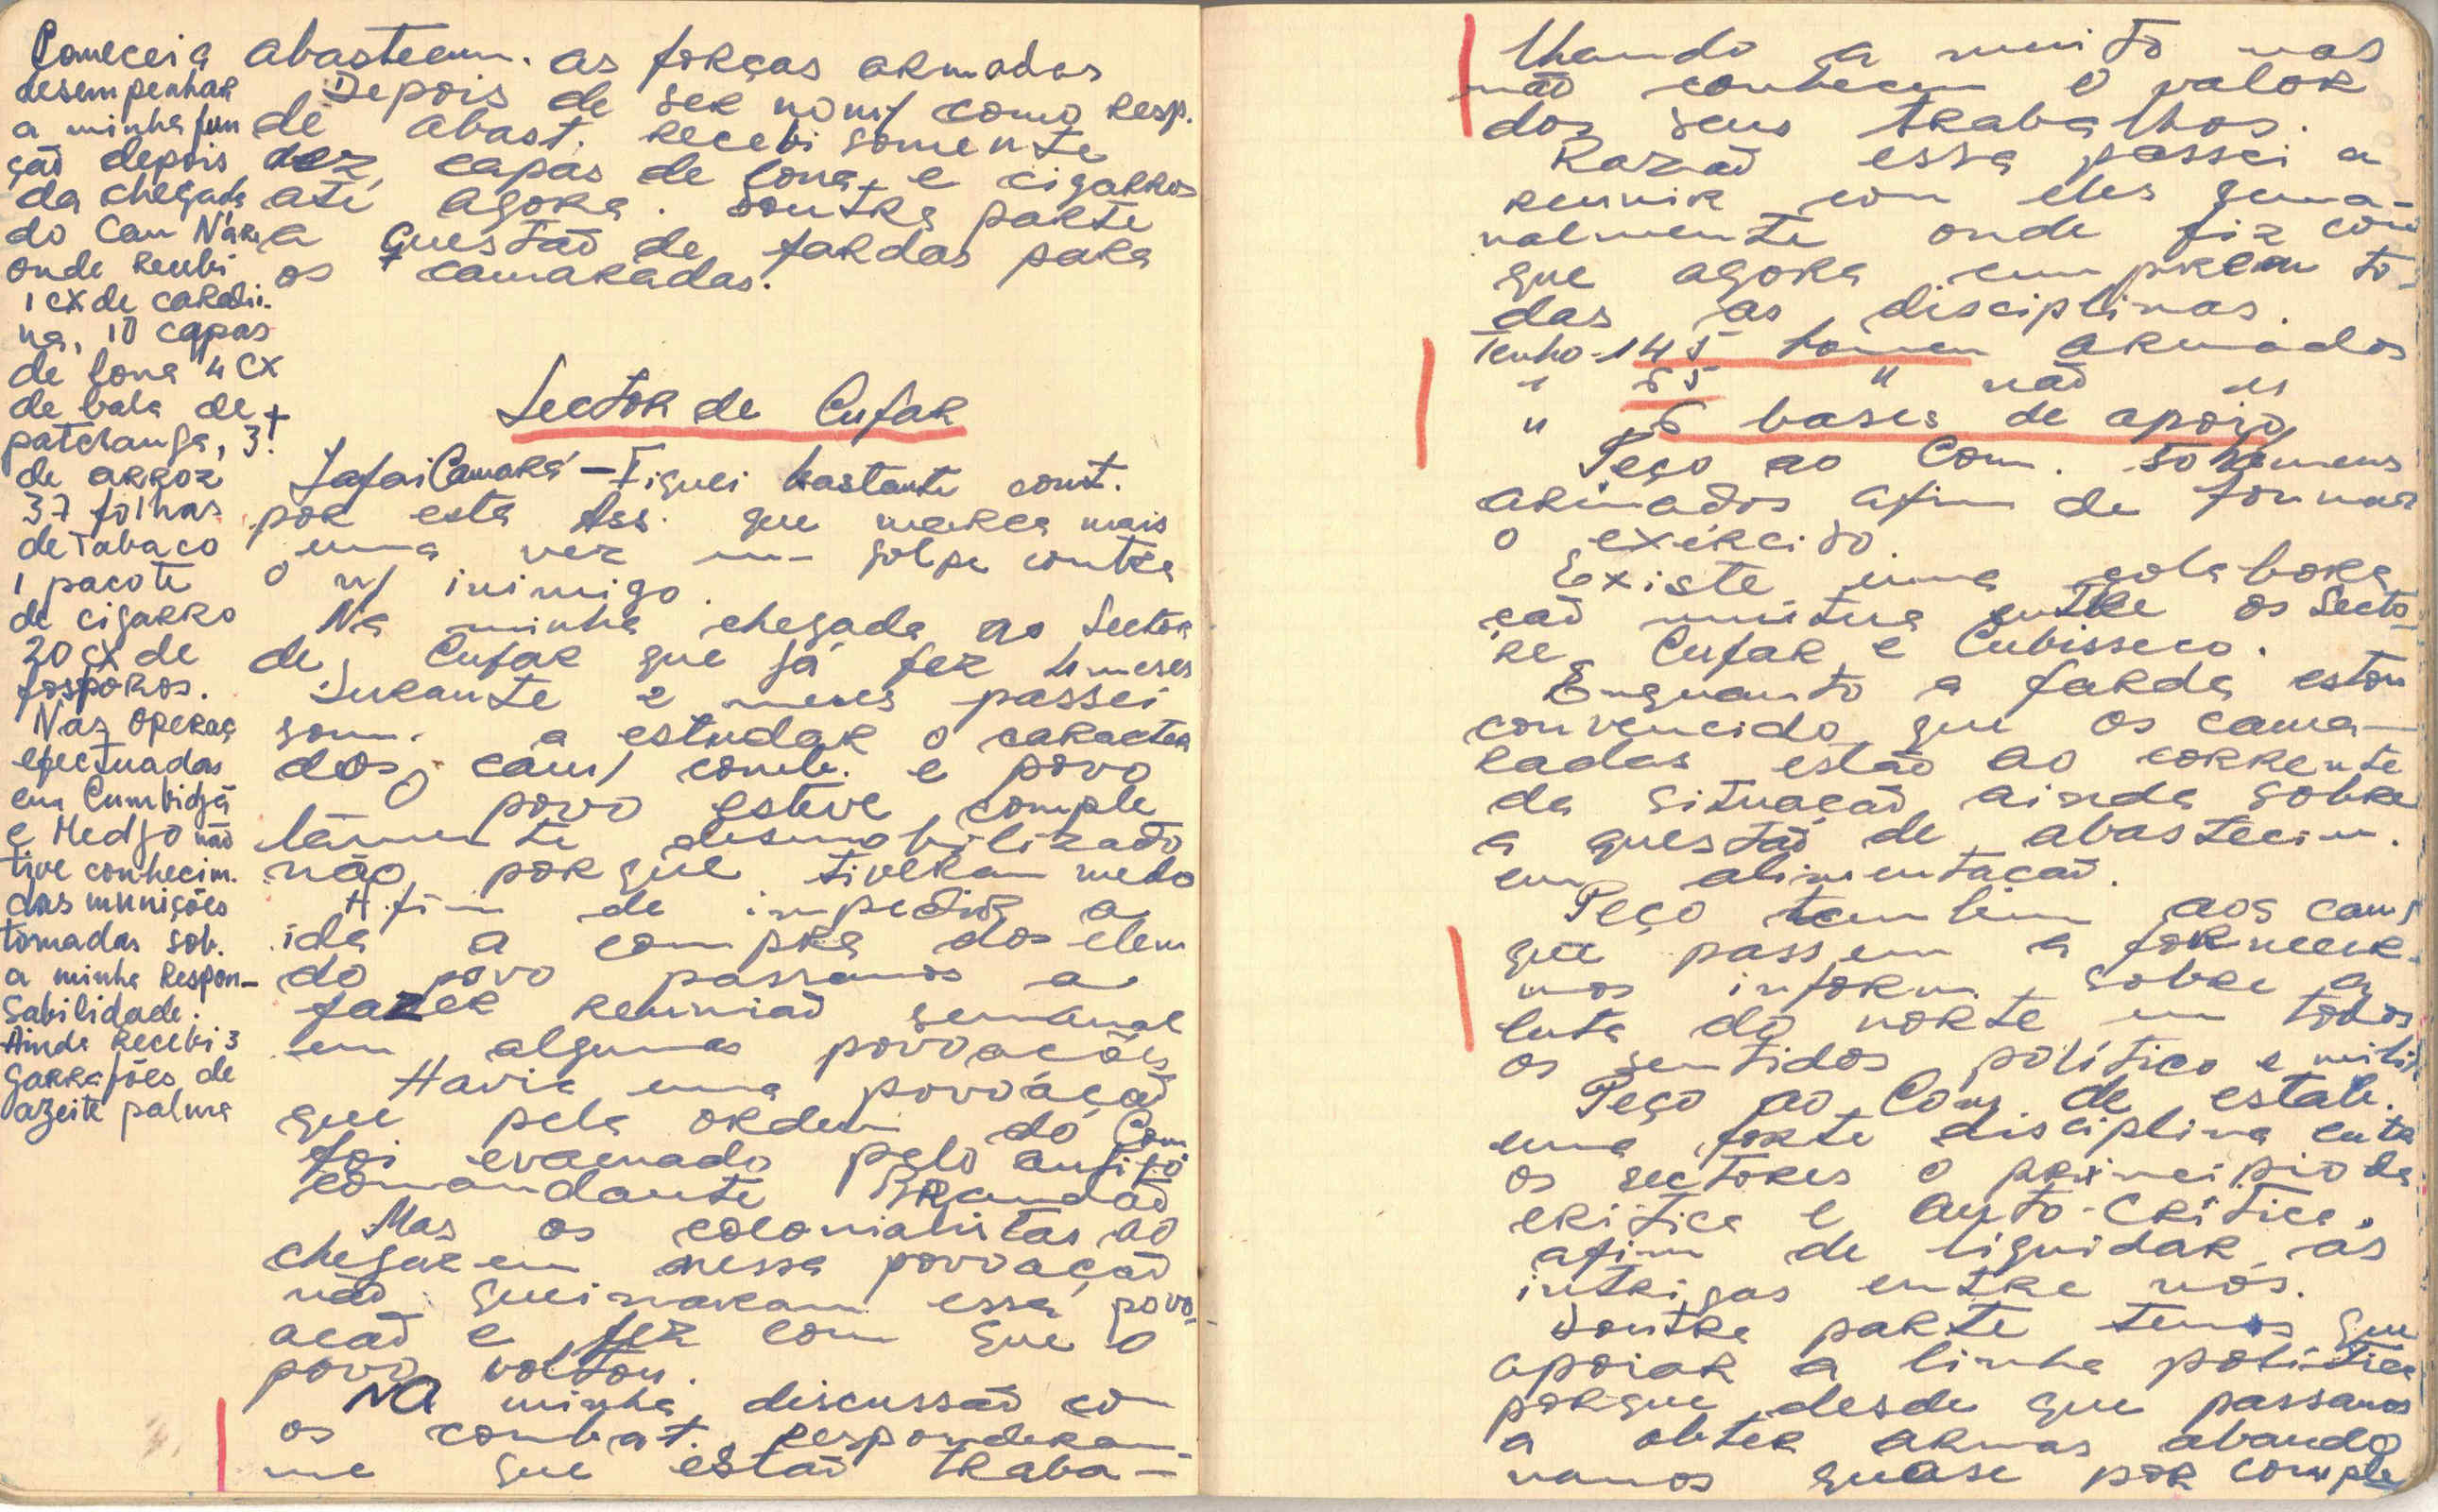 Comecei a
desempenhar
a minha fun
ção depois
da chegada
do Cam Nара
onde recebi
1 cx de cardi
na, 10 capas
de lona 4 cx
de bala de
patchanga, 3 t
de arroz
37 folhas
de Tabaco
1 pacote
de cigarro
20 cx de
fosforos.
Nas operaç
efectuadas
em Cumbidjã
e Medjo não
tive conhecim.
das munições
tomadas sob.
a minha respon-
sabilidade.
Ainda recebi 3
garrafões de
azeite palma
abastecim. as forças armadas
Depois de ser nom/ como resp.
de abast. recebi somente
dez capas de lona, e cigarros
até agora. Doutra parte
a questão de fardas para
os camaradas.
Sector de Cufar
Lafai Camará - Fiquei bastante cont.
por esta Ass. que marca mais
uma vez um golpe contra
o n/ inimigo.
Na minha chegada ao Sector
de Cufar que já fez 4 meses
Durante 2 meses passei
som. a estudar o caracter
dos cam/ comb. e povo
O povo esteve comple
tamente desmobilizado
não porque tiveram medo
Afim de impedir a
ida a compra dos elem
do povo passamos a
fazer reunião semanal
em algumas povoações
Havia uma povoação
que pela ordem do Com
foi evacuado pelo antigo
comandante Brandão
Mas os colonialistas ao
chegarem nessa povoação
não queimaram essa povo-
ação e fez com que o
povo voltou.
Na minha discussão com
os combat. responderam-
me que estão traba-
lhando a muito mas
não conhecem o valor
dos seus trabalhos.
Razão essa passei a
reunir com eles sema-
nalmente onde fiz com
que agora cumpram to-
das as disciplinas.
Tenho 145 homen armados
" 65 " não "
" 6 bases de apoio
Peço ao Com. 50 homens
armados afim de formar
o exército.
Existe uma colabora
ção mútua entre os Secto-
re Cufar e Cubisseco.
Enquanto a farda estou
convencido que os cama-
radas estão ao corrente
da situação, ainda sobre
a questão de abastecim.
em alimentação.
Peço também aos cam/
que passem a fornecer-
nos inform. sobre a
luta do norte em todos
os sentidos político e milit
Peço ao Com. de estab.
uma forte disciplina entr
os sectores o principio da
critica e auto-critica.
afim de liquidar as
intrigas entre nós.
Doutra parte temos que
apoiar a linha política
porque desde que passamos
a obter armas abando
namos quase por comple